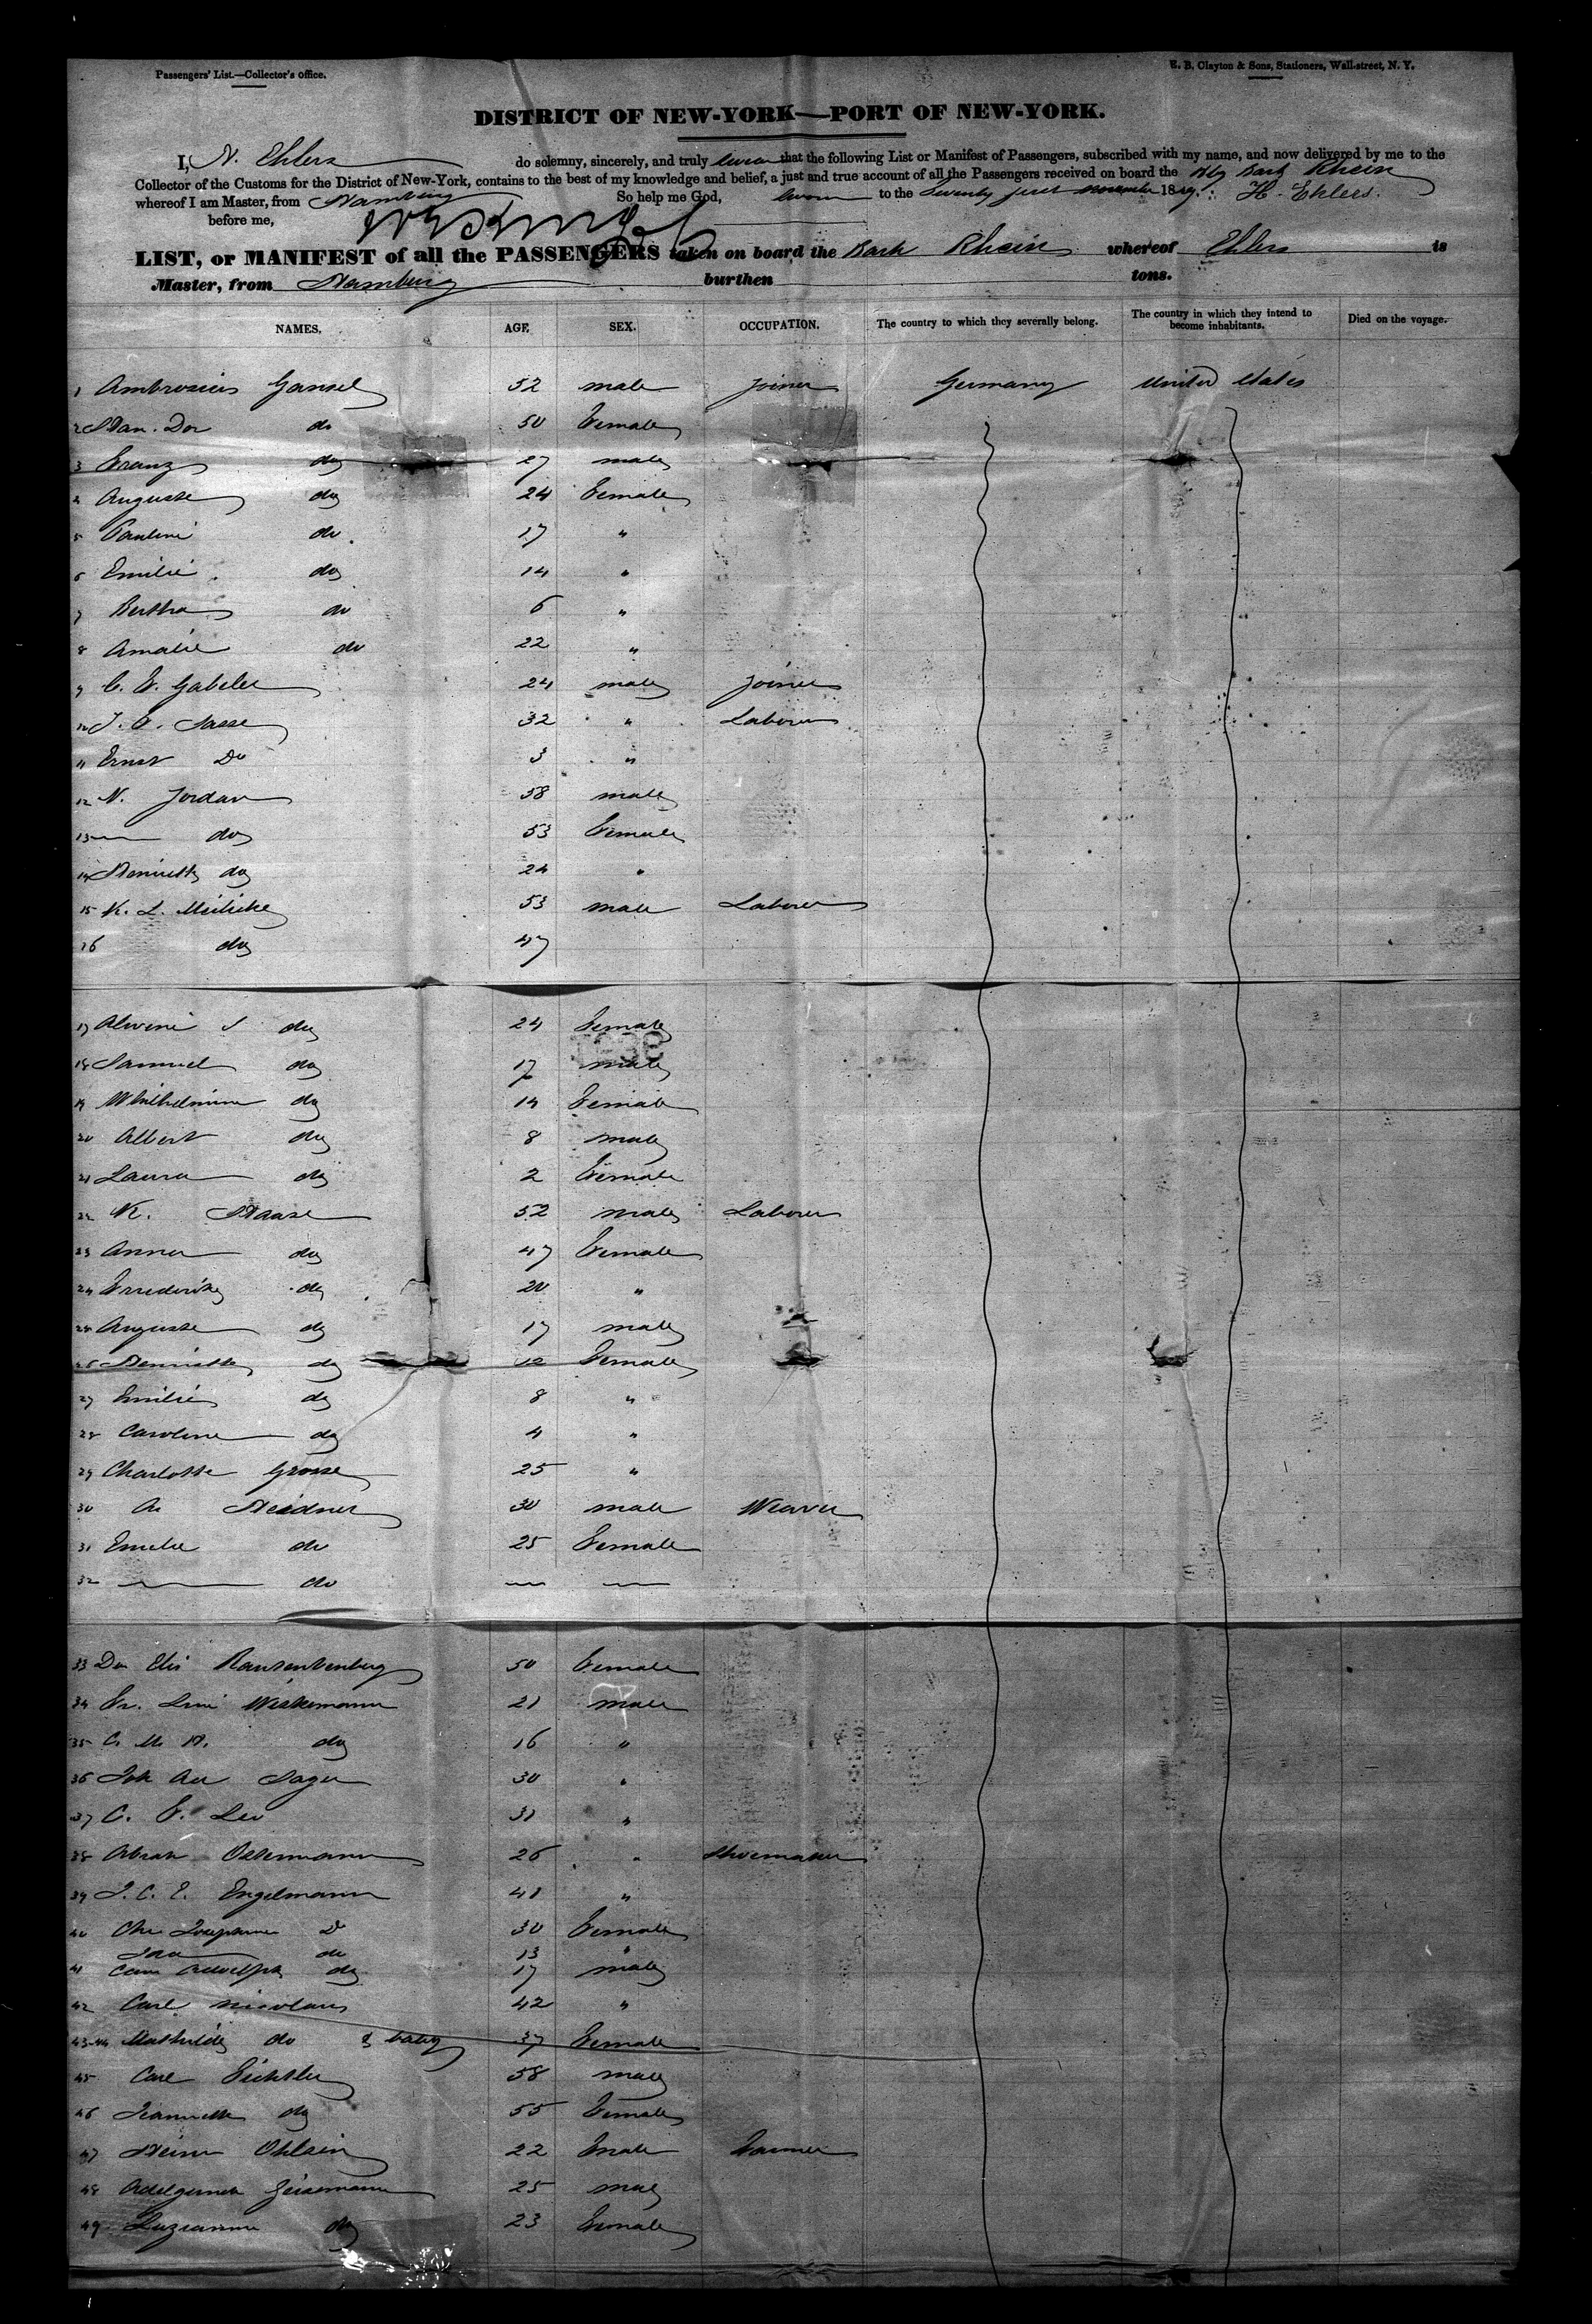 Passengers' List.—Collector's office.
E. B. Clayton & Sons, Stationers, Wall-street, N. Y.
DISTRICT OF NEW-YORK—PORT OF NEW-YORK.
I, N. Ehlers do solemny, sincerely, and truly swear that the following List or Manifest of Passengers, subscribed with my name, and now delivered by me to the
Collector of the Customs for the District of New-York, contains to the best of my knowledge and belief, a just and true account of all the Passengers received on board the Bark Rhein
whereof I am Master, from Hamburg So help me God, sworn to the Twenty first November 18 H. Ehlers.
before me,
LIST, or MANIFEST of all the PASSENGERS taken on board the Bark Rhein whereof Ehlers is
Master, from Hamburg burthen tons.
NAMES. AGE. SEX. OCCUPATION. The country to which they severally belong. The country in which they intend to become inhabitants. Died on the voyage.
1 Ambrosius Gansel 52 male Joiner Germany United States
2 Han. Dor do 50 Female
3 Franz do 27 male
4 Auguste do 24 Female
5 Pauline do 17 "
6 Emilie do 14 "
7 Bertha do 6 "
8 Amalie do 22 "
9 C. F. Gabeler 24 male Joiner
10 J. C. Sasse 32 " Laborer
11 Ernst Do 3 "
12 N. Jordan 58 male
13 — do 53 Female
14 Henriette do 24 "
15 K. L. 53 male Laborer
16 do 47
17 Alwine S do 24 Female
18 Samuel do 17 male
19 Whilhelmine do 14 Female
20 Albert do 8 male
21 Laura do 2 Female
22 W. Haase 52 male Laborer
23 Anna do 47 Female
24 Friederike do 20 "
25 Auguste do 17 male
26 Henriette do 12 Female
27 Emilie do 8 "
28 Caroline do 4 "
29 Charlotte Grosse 25 "
30 A. Heidner 30 male Weaver
31 Emelie do 25 Female
32 — do — —
33 Do Elis 50 Female
34 Fr. Wiekemann 21 male
35 C. M. H. do 16 "
36 Joh Sager 30 "
37 C. F. Leo 31 "
38 Abrah Ostermann 26 " Shoemaker
39 J. C. E. Engelmann 41 "
40 Chr Josephine D 30 Female
Ida do 13 "
41 Carl Adolph do 17 male
42 Carl Nicolaus 42 "
43-44 Mathilde do & baby 37 Female
45 Carl 58 male
46 Jeannette do 55 Female
47 Heinr Ohlsen 22 male Farmer
48 25 male
49 Suzanne do 23 Female